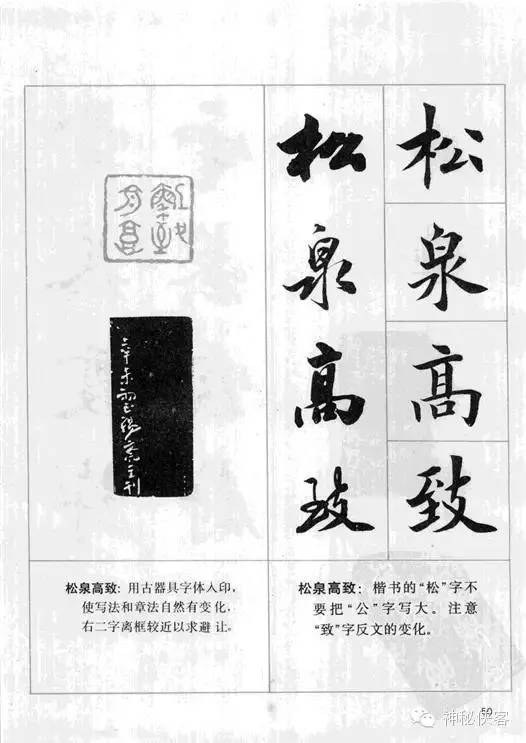 松泉高致
松泉高致
松泉高致：用古器具字体入印，
使写法和章法自然有变化，
右二字离框较近以求避 让。
松泉高致：楷书的“松”字不
要把“公”字写大。注意
“致”字反文的变化。
50
神秘侠客